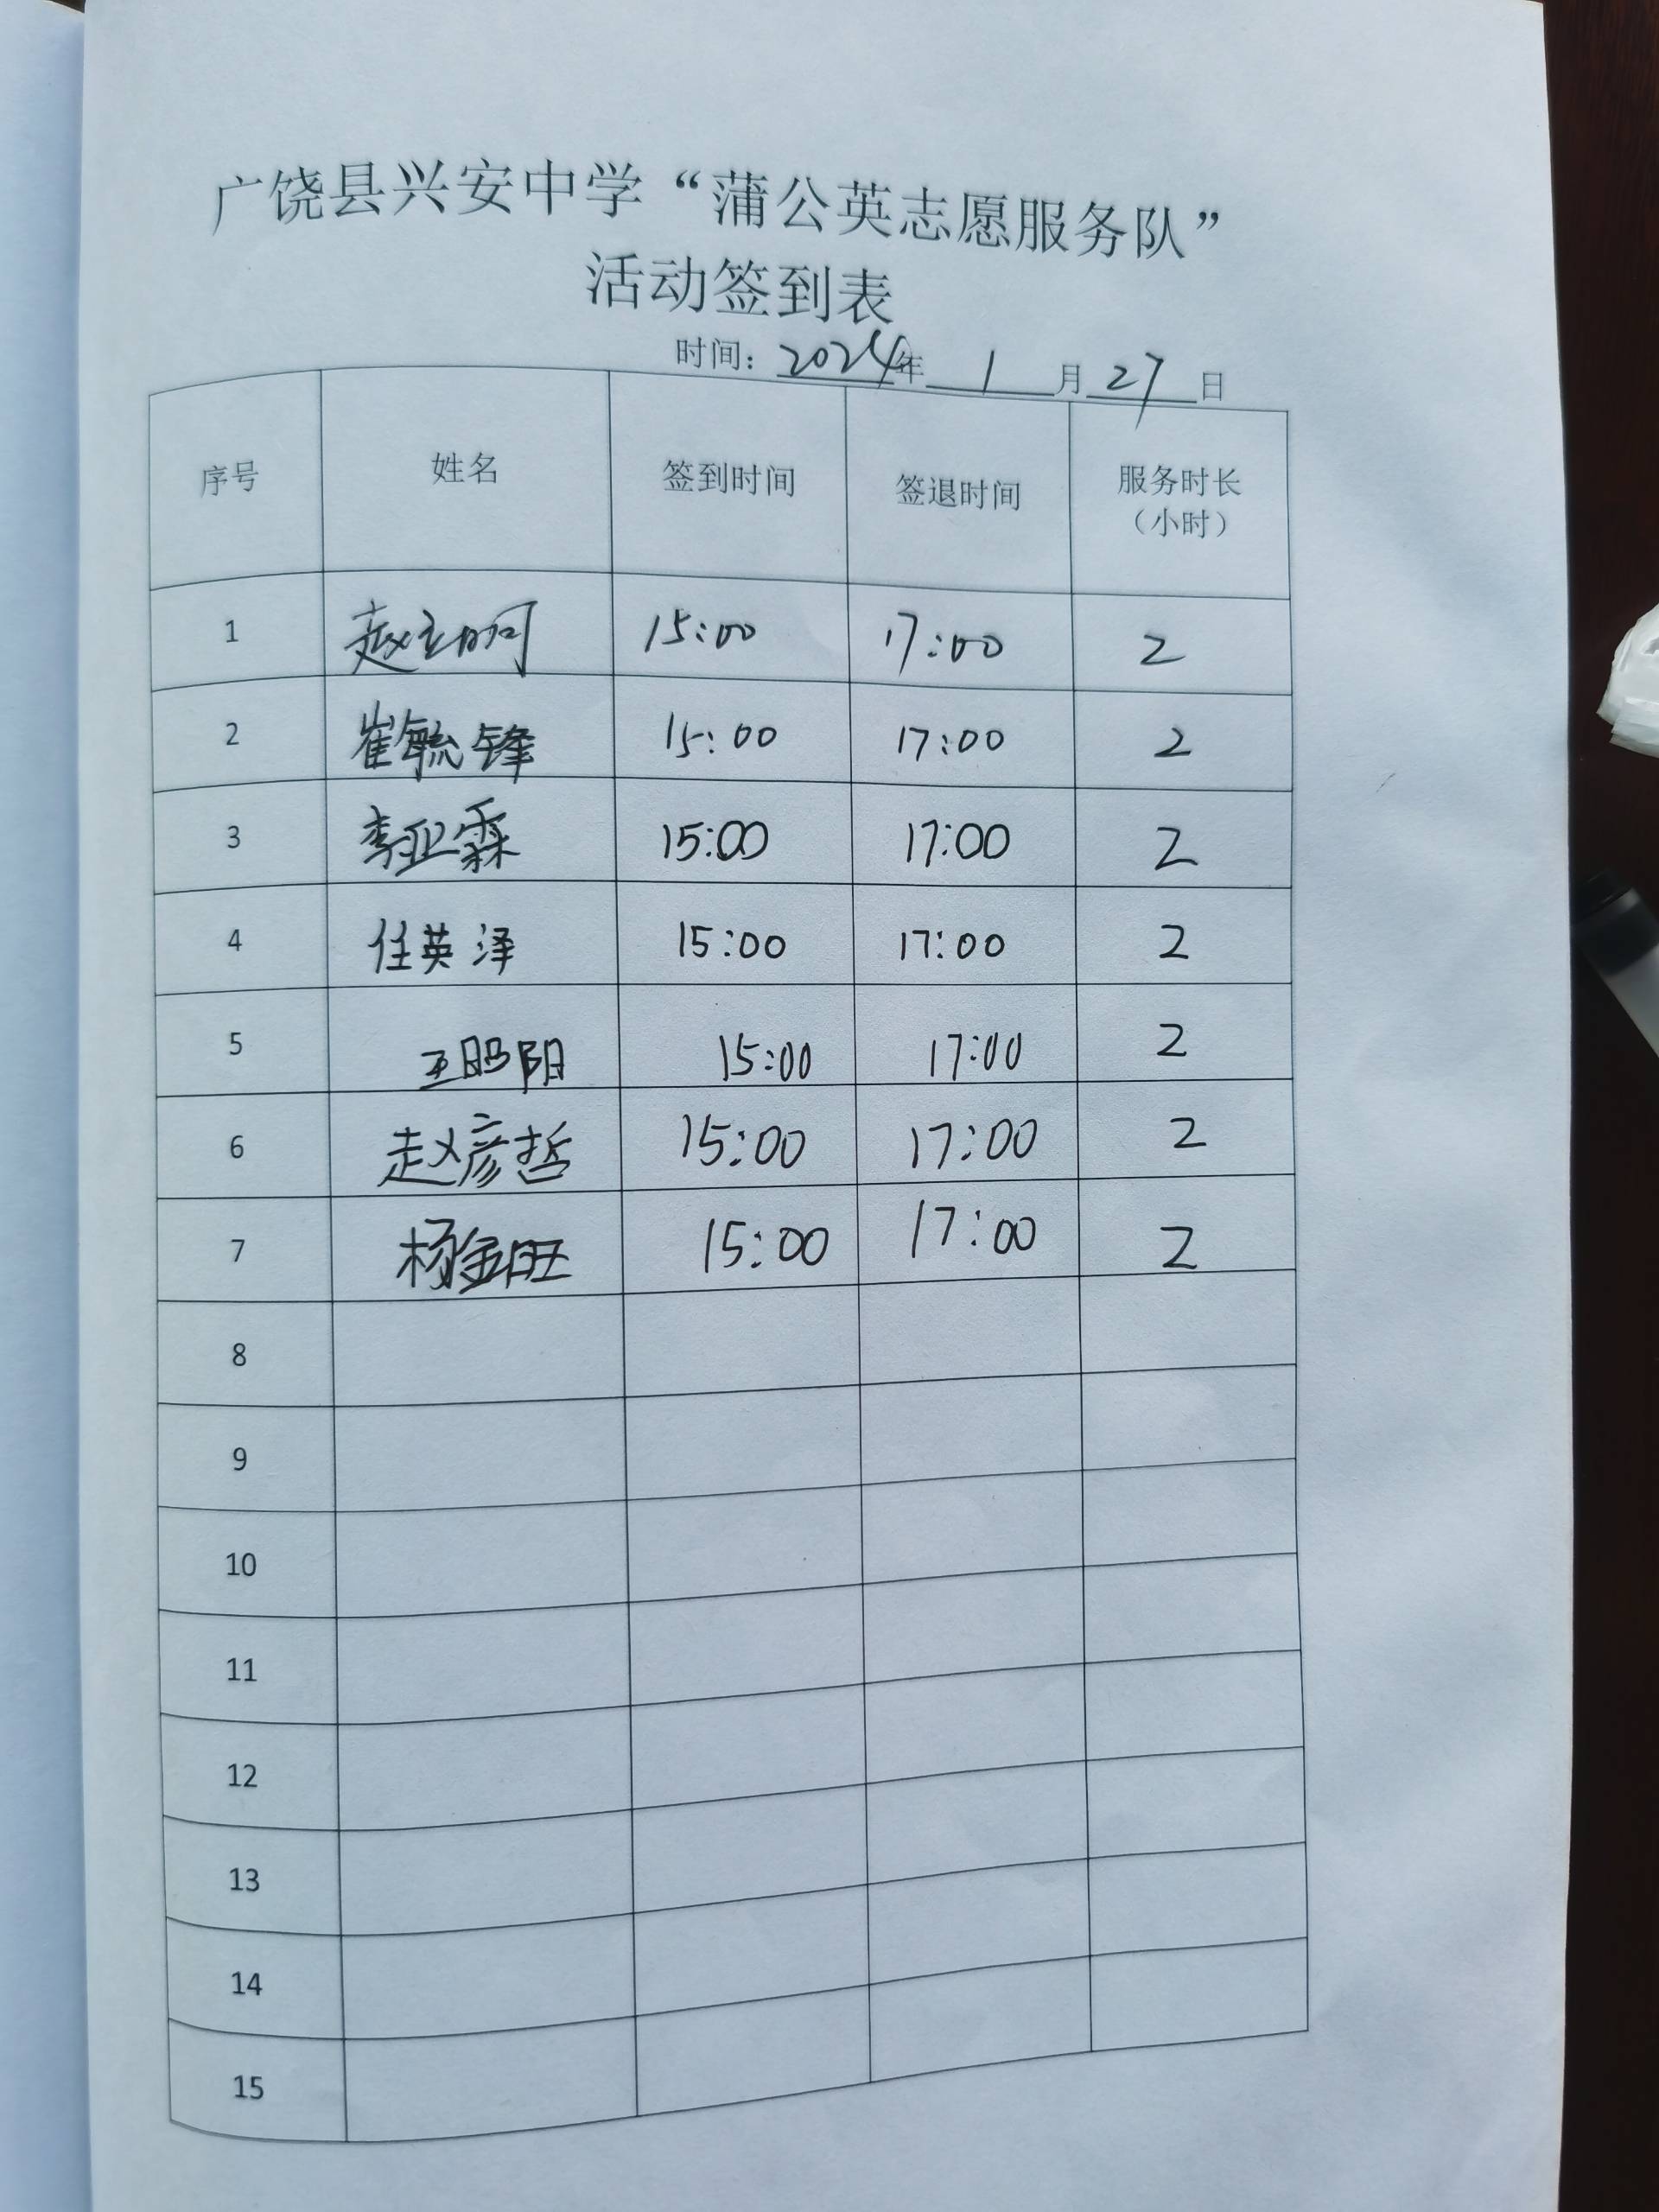 广饶县兴安中学“蒲公英志愿服务队”
活动签到表
时间：2024年 1 月 27 日
序号 姓名 签到时间 签退时间 服务时长（小时）
1 赵 15:00 17:00 2
2 崔毓锋 15:00 17:00 2
3 李亚霖 15:00 17:00 2
4 任英泽 15:00 17:00 2
5 王昭阳 15:00 17:00 2
6 赵彦哲 15:00 17:00 2
7 杨金旺 15:00 17:00 2
8
9
10
11
12
13
14
15